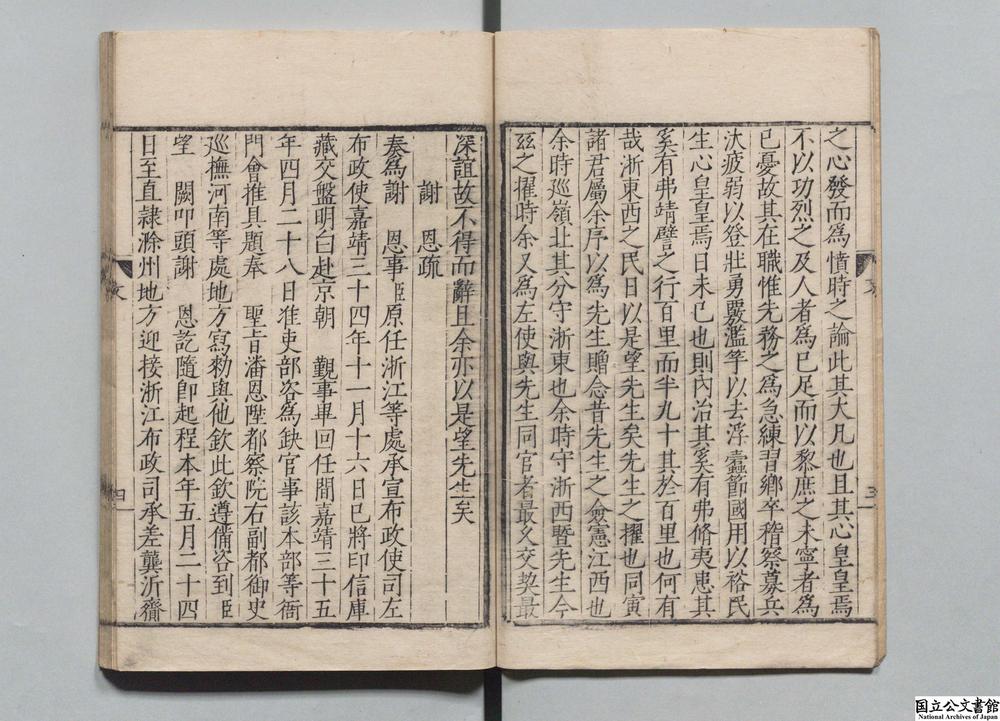 之心發而為憤時之論此其大凡也且其心皇皇焉
不以功烈之及人者為已足而以黎庶之未寧者為
已憂故其在職惟先務之為急練習鄉卒稽察募兵
汰疲弱以登壯勇覈濫竽以去浮蠹節國用以裕民
生心皇皇焉日未已也則內治其奚有弗脩夷患其
奚有弗靖譬之行百里而半九十其於百里也何有
哉浙東西之民日以是望先生矣先生之擢也同寅
諸君屬余序以為先生贈念昔先生之僉憲江西也
余時巡嶺北其分守浙東也余時守浙西暨先生今
茲之擢時余又為左使與先生同官者最久交契最
文
三
深誼故不得而辭且余亦以是望先生矣
謝 恩疏
奏為謝 恩事臣原任浙江等處承宣布政使司左
布政使嘉靖三十四年十一月十六日已將印信庫
藏交盤明白赴京朝 覲事畢回任間嘉靖三十五
年四月二十八日准吏部咨為缺官事該本部等衙
門會推具題奉 聖旨潘恩陞都察院右副都御史
巡撫河南等處地方寫勑與他欽此欽遵備咨到臣
望 闕叩頭謝 恩訖隨即起程本年五月二十四
日至直隸滁州地方迎接浙江布政司承差龔沂齎
文
四
国立公文書館
National Archives of Japan